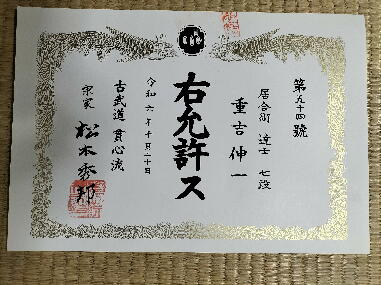 第九十四號
居合術 達士 七段
重吉伸一
右允許ス
令和六年十月二十日
古武道 貫心流
宗家 松本秀邦